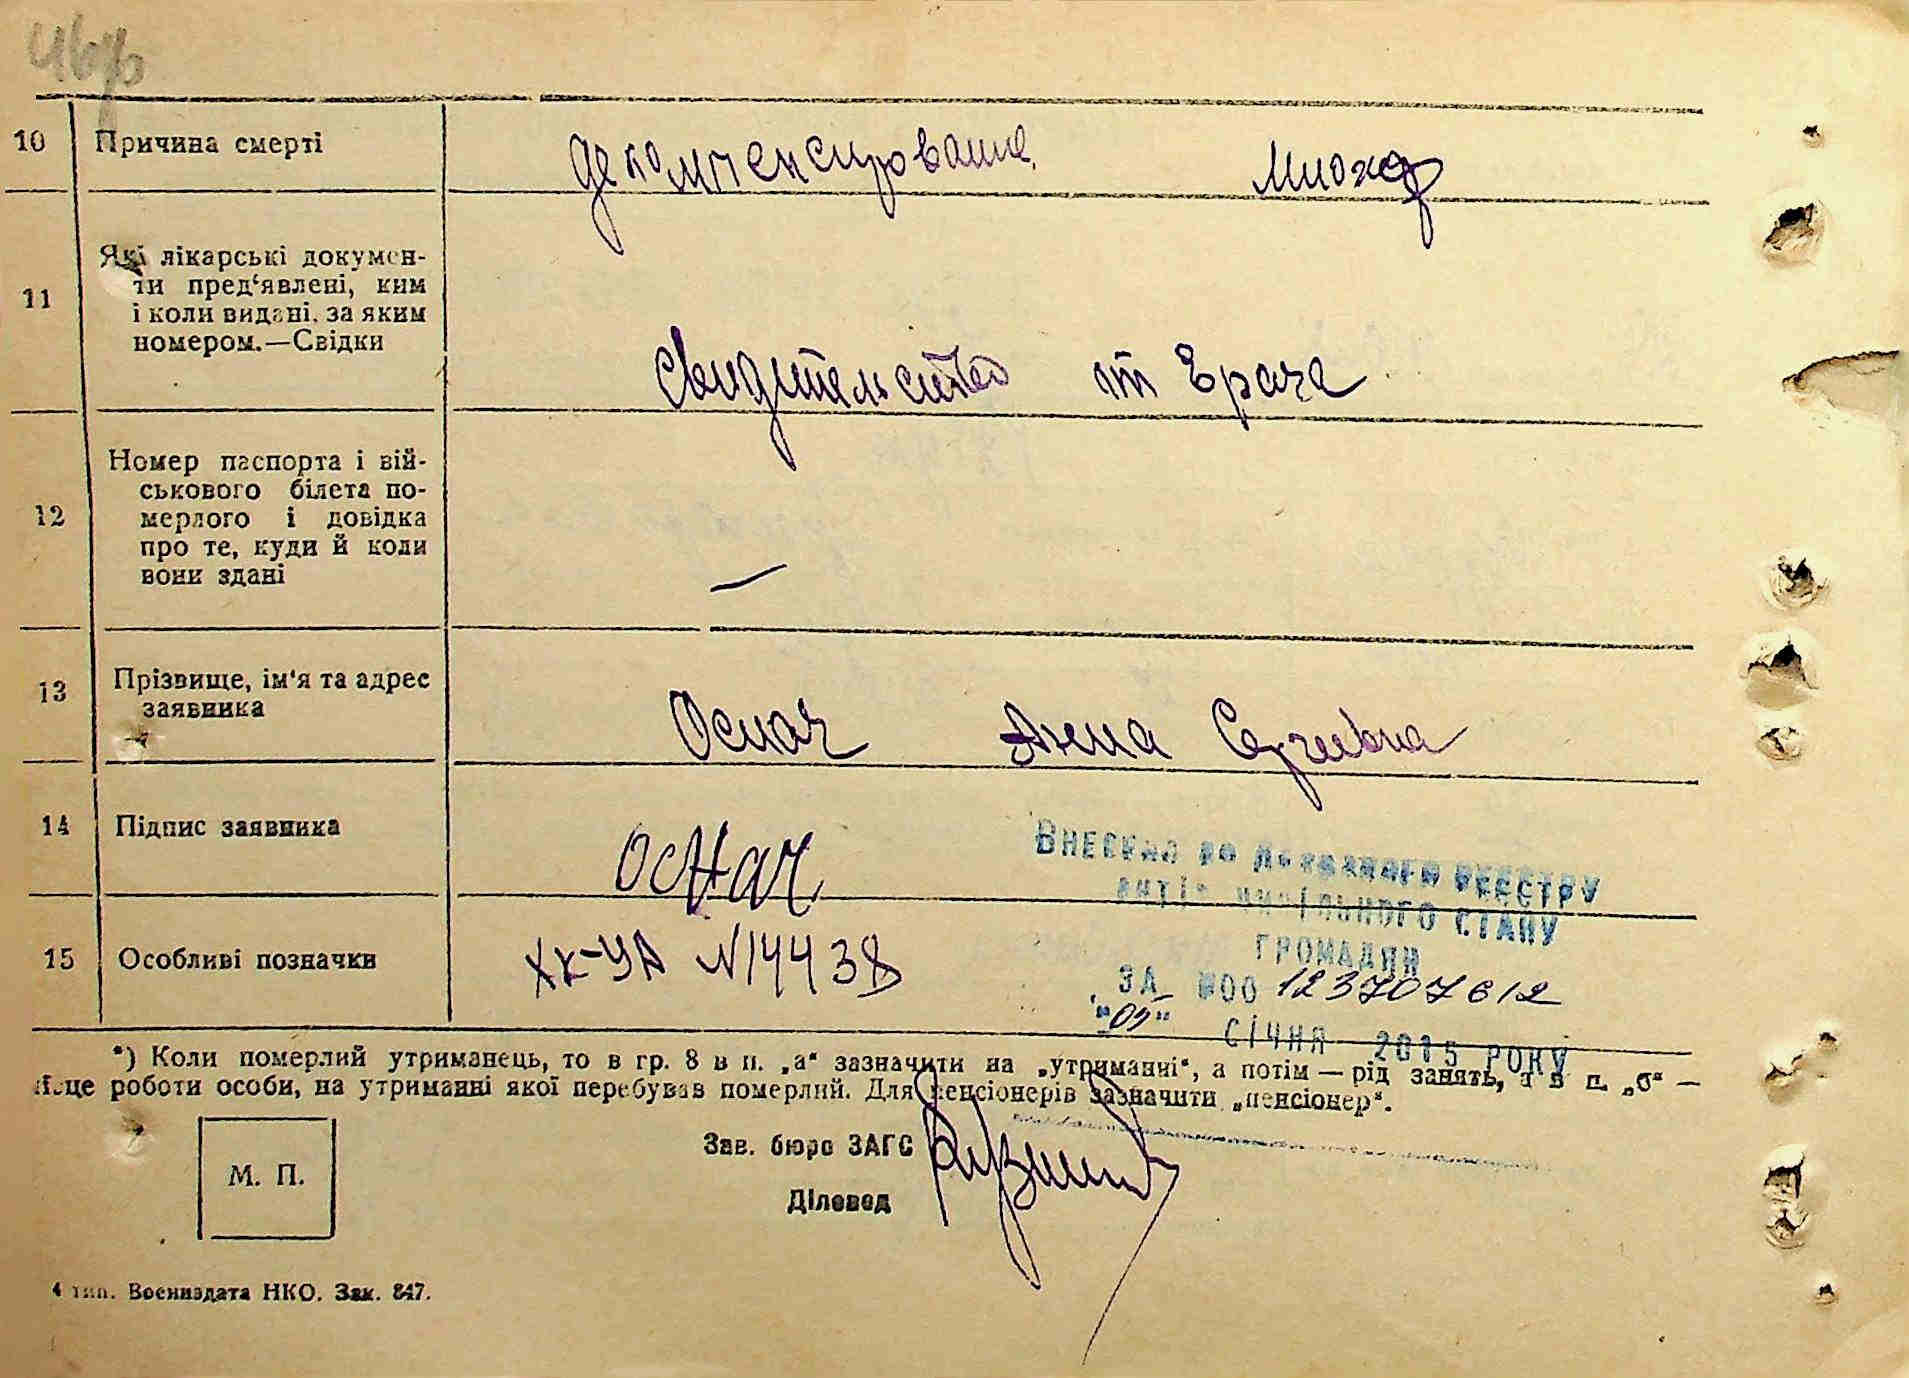 10 Причина смерті декомпенсирование Миокар
11 Які лікарські докумен-
ти пред'явлені, ким
і коли видані, за яким
номером.—Свідки
Свидительство от Врача
12 Номер паспорта і вій-
ськового білета по-
мерлого і довідка
про те, куди й коли
вони здані
—
13 Прізвище, ім'я та адрес
заявника
Оснач Анна Сергиевна
14 Підпис заявника Оснач
15 Особливі позначки ХК-УА N 14438
Внесено до Державного реєстру
актів цивільного стану
громадян
за №00 123707612
"05" січня 2015 року
*) Коли померлий утриманець, то в гр. 8 в п. „а“ зазначити на „утриманні“, а потім — рід занять, а в п. „б“ —
місце роботи особи, на утриманні якої перебував померлий. Для пенсіонерів зазначити „пенсіонер“.
Зав. бюро ЗАГС
Діловод
М. П.
4 тип. Воениздата НКО. Зак. 847.